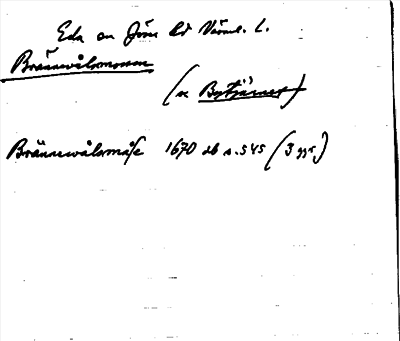 Eda sn Jösse hd Värml. l.
Brännvålsmossen
(se Bytjärnet)
Brännewålsmåsse 1670 db s. 545 (3 ggr.)